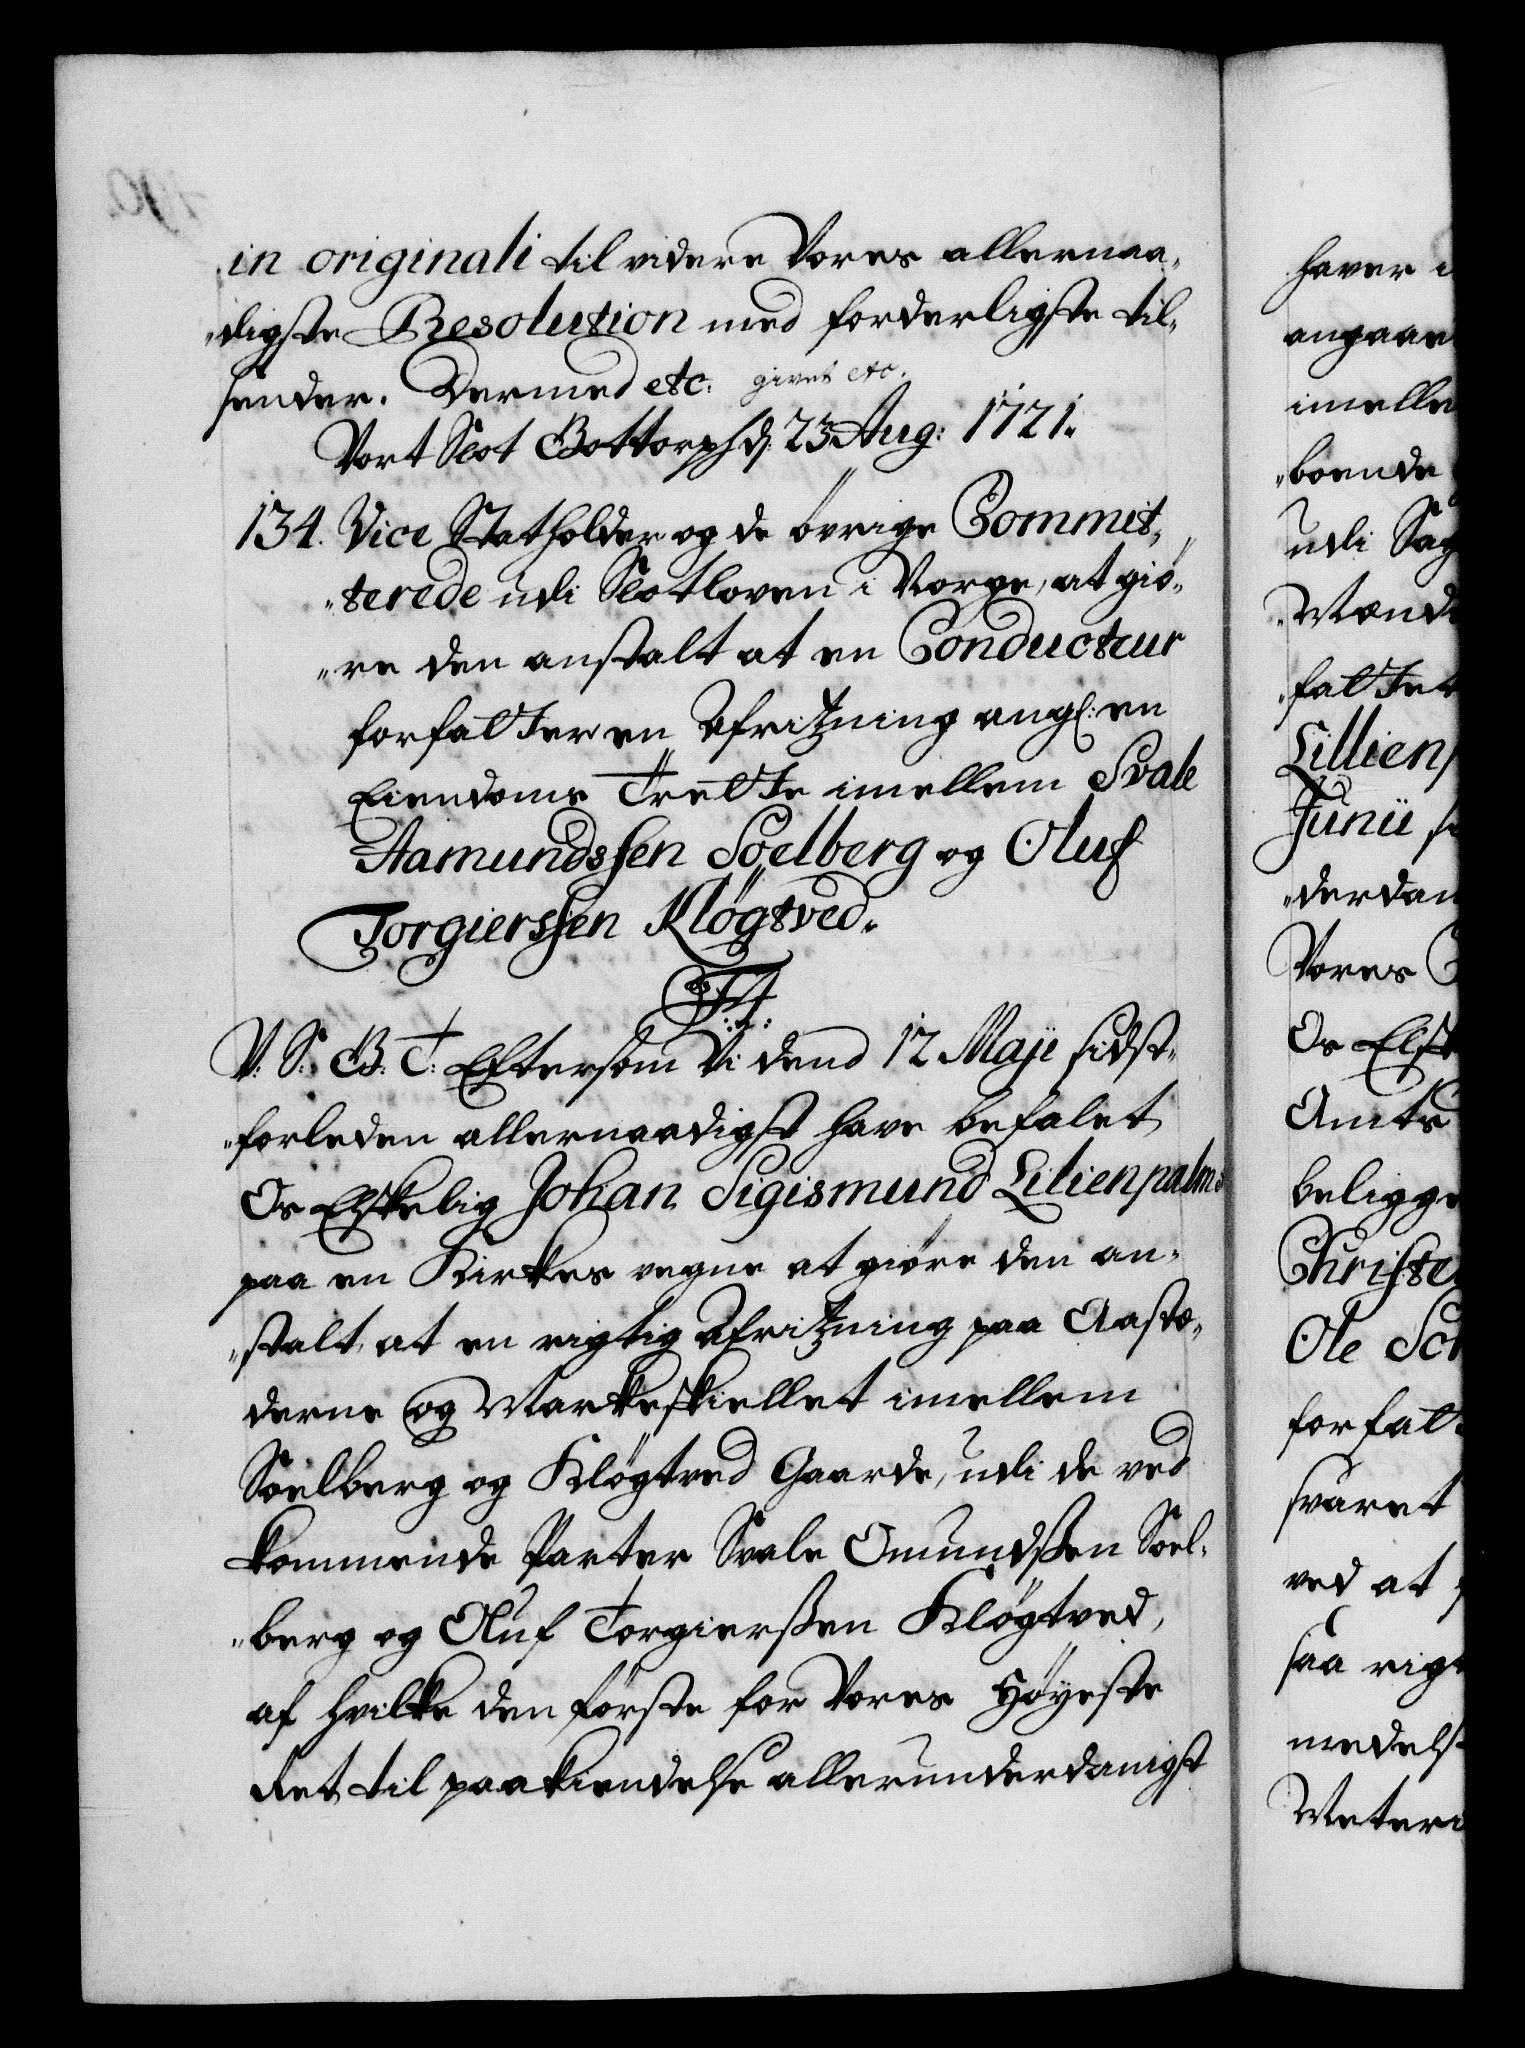 in originali til videre Vores allernaa„
„digste Resolution med forderligste til„
sender. Dermed etc: givet etc.
Vort Slot Gottorph d: 23 Aug: 1721.
134. Vice Statholder og de övrige Commit„
„terede udi Slotloven i Norge, at giö„
„re den anstalt at en Conducteur
forfatter en Afritzning angl: en
Eiendoms Trette imellem Svale
Aamundssen Soelberg og Oluf
Torgierssen Kløgtved.
T:
V: S: G: T: Eftersom Vi dend 12 Maji sidst„
„forleden allernaadigst have befalet
Os Elskelig Johan Sigismund Lilienpalm
paa en Kirkes vegne at giöre den an„
„stalt, at en rigtig Afritzning paa Aastæ„
derne og Markeskiellet imellem
Soelberg og Kløgtved Gaarde, udi de ved
kommende Parter Svale Omundßen Soel„
„berg og Oluf Torgierßen Kløgtved,
af hvilke den förste for Vores Höyeste
Ret til paakiendelse allerunderdanigst
haver i
angaae
imelle
„boende
udi Sag
Mænd
„fatte
Lilliens
Junii s
„derdan
Vores
Os Elsk
Amts
beligge
Christe
Ole Sch
forfat
svaret
ved at
saa rigt
medels
Meteri